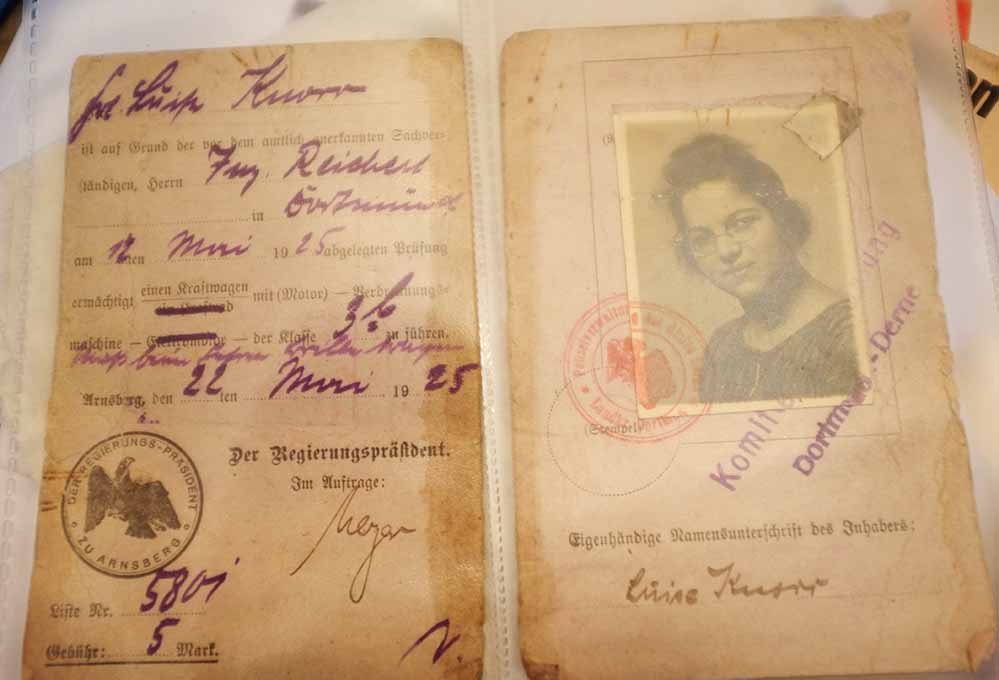 Frl. Luise Knorr
ist auf Grund der vor dem amtlich anerkannten Sachver-
ständigen, Herrn Ing. Reichert
in Dortmund
am 12ten Mai 1925 abgelegten Prüfung
ermächtigt einen Kraftwagen mit (Motor) — Verbrennungs-
ein Kraftrad
maschine — Elektromotor — der Klasse 3b zu führen.
Muß beim Fahren Brille tragen
Arnsberg, den 22ten Mai 1925
Der Regierungspräsident.
Im Auftrage:
DER REGIERUNGS-PRÄSIDENT
ZU ARNSBERG
Liste Nr. 5801
Gebühr: 5 Mark.
(Stempel)
Dortmund-Derne
Eigenhändige Namensunterschrift des Inhabers:
Luise Knorr